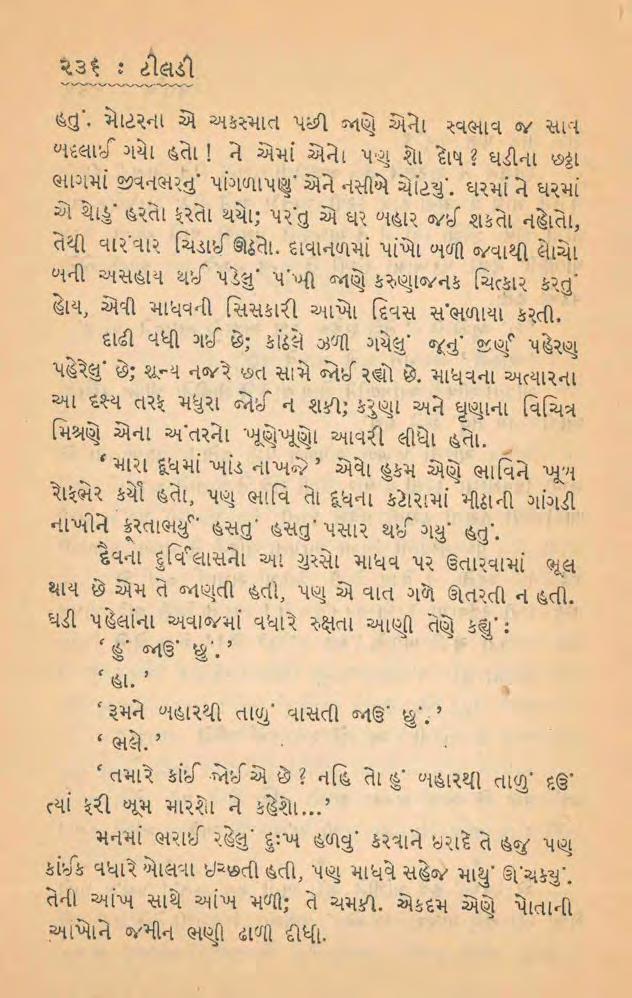 ૨૩૬ : ટીલડી
હતું. મોટરના એ અકસ્માત પછી જાણે એનો સ્વભાવ જ સાવ
બદલાઈ ગયો હતો! ને એમાં એનો પણ શો દોષ? ઘડીના છઠ્ઠા
ભાગમાં જીવનભરનું પાંગળાપણું એને નસીબે ચોંટ્યું. ઘરમાં ને ઘરમાં
એ થોડું હરતો ફરતો થયો; પરંતુ એ ઘર બહાર જઈ શકતો નહોતો,
તેથી વારંવાર ચિડાઈ ઊઠતો. દાવાનળમાં પાંખો બળી જવાથી લોચો
બની અસહાય થઈ પડેલું પંખી જાણે કરુણાજનક ચિત્કાર કરતું
હોય, એવી માધવની સિસકારી આખો દિવસ સંભળાયા કરતી.
દાઢી વધી ગઈ છે; કાંઠલે ઝળી ગયેલું જૂનું જીર્ણ પહેરણ
પહેરેલું છે; શૂન્ય નજરે છત સામે જોઈ રહ્યો છે. માધવના અત્યારના
આ દૃશ્ય તરફ મધુરા જોઈ ન શકી; કરુણા અને ઘૃણાના વિચિત્ર
મિશ્રણે એના અંતરનો ખૂણેખૂણો આવરી લીધો હતો.
‘મારા દૂધમાં ખાંડ નાખજે’ એવો હુકમ એણે ભાવિને ખૂબ
રોફભેર કર્યો હતો, પણ ભાવિ તો દૂધના કટોરામાં મીઠાની ગાંગડી
નાખીને ક્રૂરતાભર્યું હસતું હસતું પસાર થઈ ગયું હતું.
દૈવના દુર્વિલાસનો આ ગુસ્સો માધવ પર ઉતારવામાં ભૂલ
થાય છે એમ તે જાણતી હતી, પણ એ વાત ગળે ઊતરતી ન હતી.
ઘડી પહેલાંના અવાજમાં વધારે રુક્ષતા આણી તેણે કહ્યું :
‘હું જાઉં છું.’
‘હા.’
‘રૂમને બહારથી તાળું વાસતી જાઉં છું.’
‘ભલે.’
‘તમારે કાંઈ જોઈએ છે? નહિ તો હું બહારથી તાળું દઉં
ત્યાં ફરી બૂમ મારશો ને કહેશો...’
મનમાં ભરાઈ રહેલું દુઃખ હળવું કરવાને ઇરાદે તે હજુ પણ
કાંઈક વધારે બોલવા ઇચ્છતી હતી, પણ માધવે સહેજ માથું ઊંચક્યું.
તેની આંખ સાથે આંખ મળી; તે ચમકી. એકદમ એણે પોતાની
આંખોને જમીન ભણી ઢાળી દીધી.